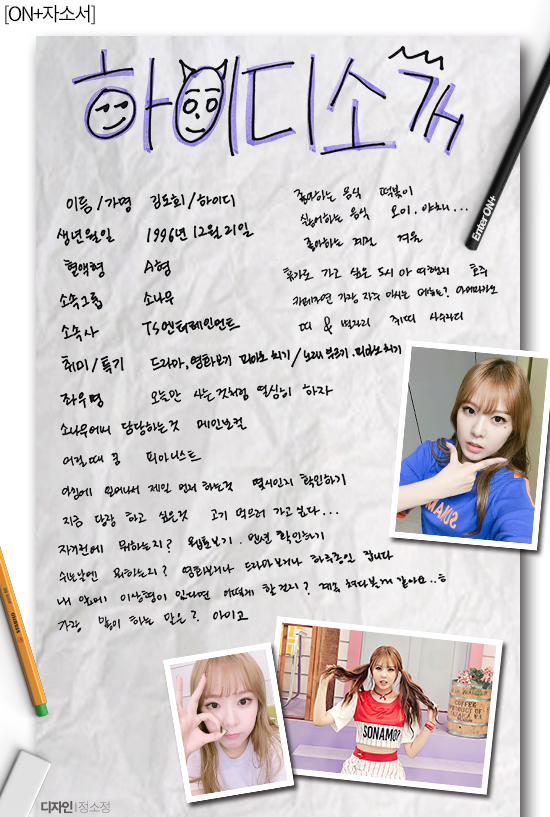 [ON+자소서]
하이디소개
Enter ON+
이름/가명 김도희/하이디
생년월일 1996년 12월 21일
혈액형 A형
소속그룹 소나무
소속사 TS엔터테인먼트
취미/특기 드라마, 영화보기 피아노 치기/노래 부르기, 피아노 치기
좌우명 오늘만 사는것처럼 열심히 하자
소나무에서 담당하는것 메인보컬
어릴때 꿈 피아니스트
아침에 일어나서 제일 먼저 하는것 몇시인지 확인하기
지금 당장 하고 싶은것 고기 먹으러 가고싶다...
자기전에 뭐하는지? 웹툰보기, 팬센 확인하기
쉬는날엔 뭐하는지? 영화보거나 드라마보거나 하루종일 잡니다
내 앞에 이상형이 있다면 어떻게 할건지? 계속 쳐다볼거 같아요..ㅎ
가장 많이 하는 말은? 아이고
좋아하는 음식 떡볶이
싫어하는 음식 오이, 야채...
좋아하는 계절 겨울
휴가로 가고 싶은 도시 아 여행지 호주
카페가면 가장 자주 마시는 메뉴는? 아메리카노
띠 & 별자리 쥐띠 사수자리
SONAMOO
SONAMOO
COFFEE
PRODUCT OF
JAMAICA
STABILO
디자인 | 정소정